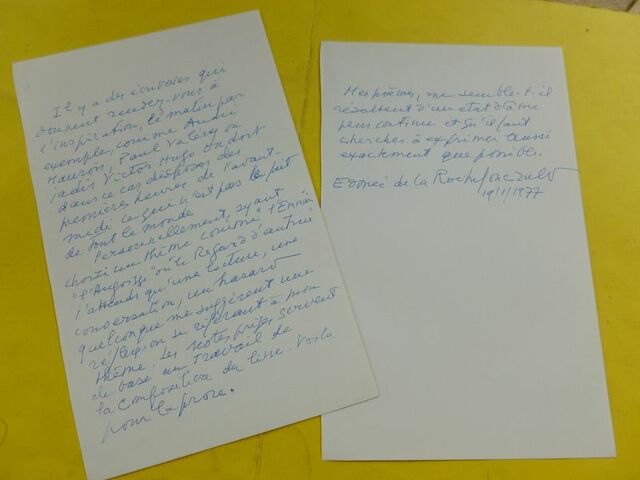 Il y a des écrivains qui
donnent rendez-vous à
l'inspiration, le matin par
exemple, comme André
Maurois, Paul Valéry ou
jadis Victor Hugo. On doit
dans ce cas disposer des
premières heures de l'avant-
midi - ce qui n'est pas le fait
de tout le monde
Personnellement, ayant
choisi un thème comme "l'Ennui"
"l'Angoisse" ou "le Regard d'autrui"
j'attends qu'une lecture, une
conversation, un hasard
quelconque me suggèrent une
réflexion se référant à mon
thème. Les notes prises servent
de base au travail de
la composition du livre. Voilà
pour la prose.
Mes poèmes, me semble-t-il
résultent d'un état d'âme
peu continu et qu'il faut
chercher à exprimer aussi
exactement que possible.
Edmée de La Rochefoucauld
19/1/1977